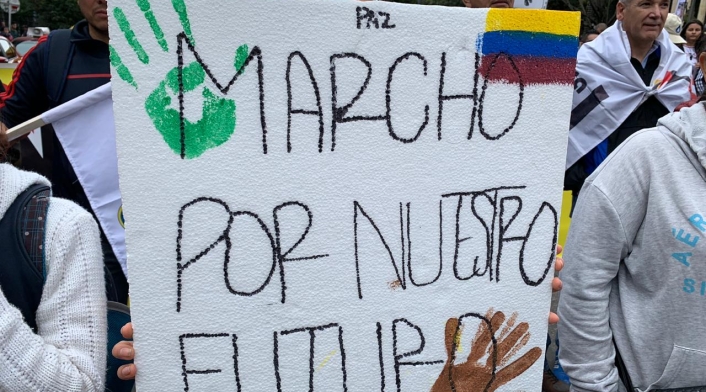 PAZ
MARCHO
POR NUESTRO
FUTURO
AÉR
SI